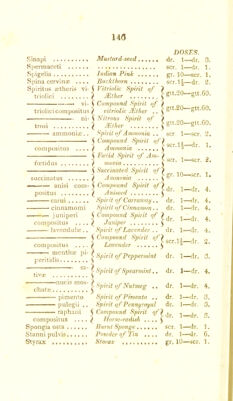 146
DOSES.
Sinapi .......... Mustard-seed ...... dr. 1—dr. 3.
Spermaceti ...... .......... scr. 1—dr. 1.
Spigelia .......... Indian Pink ...... gr. 10—scr. 1.
Spina cervinæ .... Buckthorn ........ scr. 1½—dr. 2.
Spiritus ætheris vi- } Vitriolic Spirit of }
triolici ......... } Æther ........ } gtt.20—gtt.60.
———— vi- } Compound Spirit of }
triolici compositus } vitriolic Æther .. } gtt.20—gtt.60.
———— ni- } Nitrous Spirit of }
trosi ........ } Æther ........ } gtt.20—gtt.60.
———— ammoniæ .. Spirit of Ammonia .. scr. 1—scr. 2.
———— } Compound Spirit of }
compositus .... } Ammonia ...... } scr. 1½—dr. 1.
———— } Fœtid Spirit of Am- }
fœtidus ........ } monia .......... } scr. 1—scr. 2.
———— } Succinated Spirit of }
succinatus ...... } Ammonia ...... } gr. 10—scr. 1.
———— anisi com- } Compound Spirit of }
positus ........ } Aniseed ........ } dr. 1—dr. 4.
———— carui ...... Spirit of Carraway .. dr. 1—dr. 4.
———— cinnamomi Spirit of Cinnamon .. dr. 1—dr. 4.
———— juniperi } Compound Spirit of }
compositus .... } Juniper ........ } dr. 1—dr. 4.
———— lavendulæ .. Spirit of Lavender .. dr. 1—dr. 4.
———— } Compound Spirit of }
compositus .... } Lavender ...... } scr.1½—dr. 2.
———— menthæ pi- }
peritidis ........ } Spirit of Peppermint dr. 1—dr. 3.
———— sa- }
tivæ .......... } Spirit of Spearmint .. dr. 1—dr. 4.
———— nucis mos- }
chatæ .......... } Spirit of Nutmeg .. dr. 1—dr. 4.
———— pimento Spirit of Pimento .. dr. 1—dr. 3.
———— pulegii .. Spirit of Pennyroyal dr. 1—dr. 5.
———— raphani } Compound Spirit of }
compositus .... } Horse-radish .... } dr. 1—dr. 3.
Spongia usta ...... Burnt Sponge ...... scr. 1—dr. 1.
Stanni pulvis ...... Powder of Tin .... dr. 1—dr. 6.
Styrax .......... Storax .......... gr. 10—scr. 1.